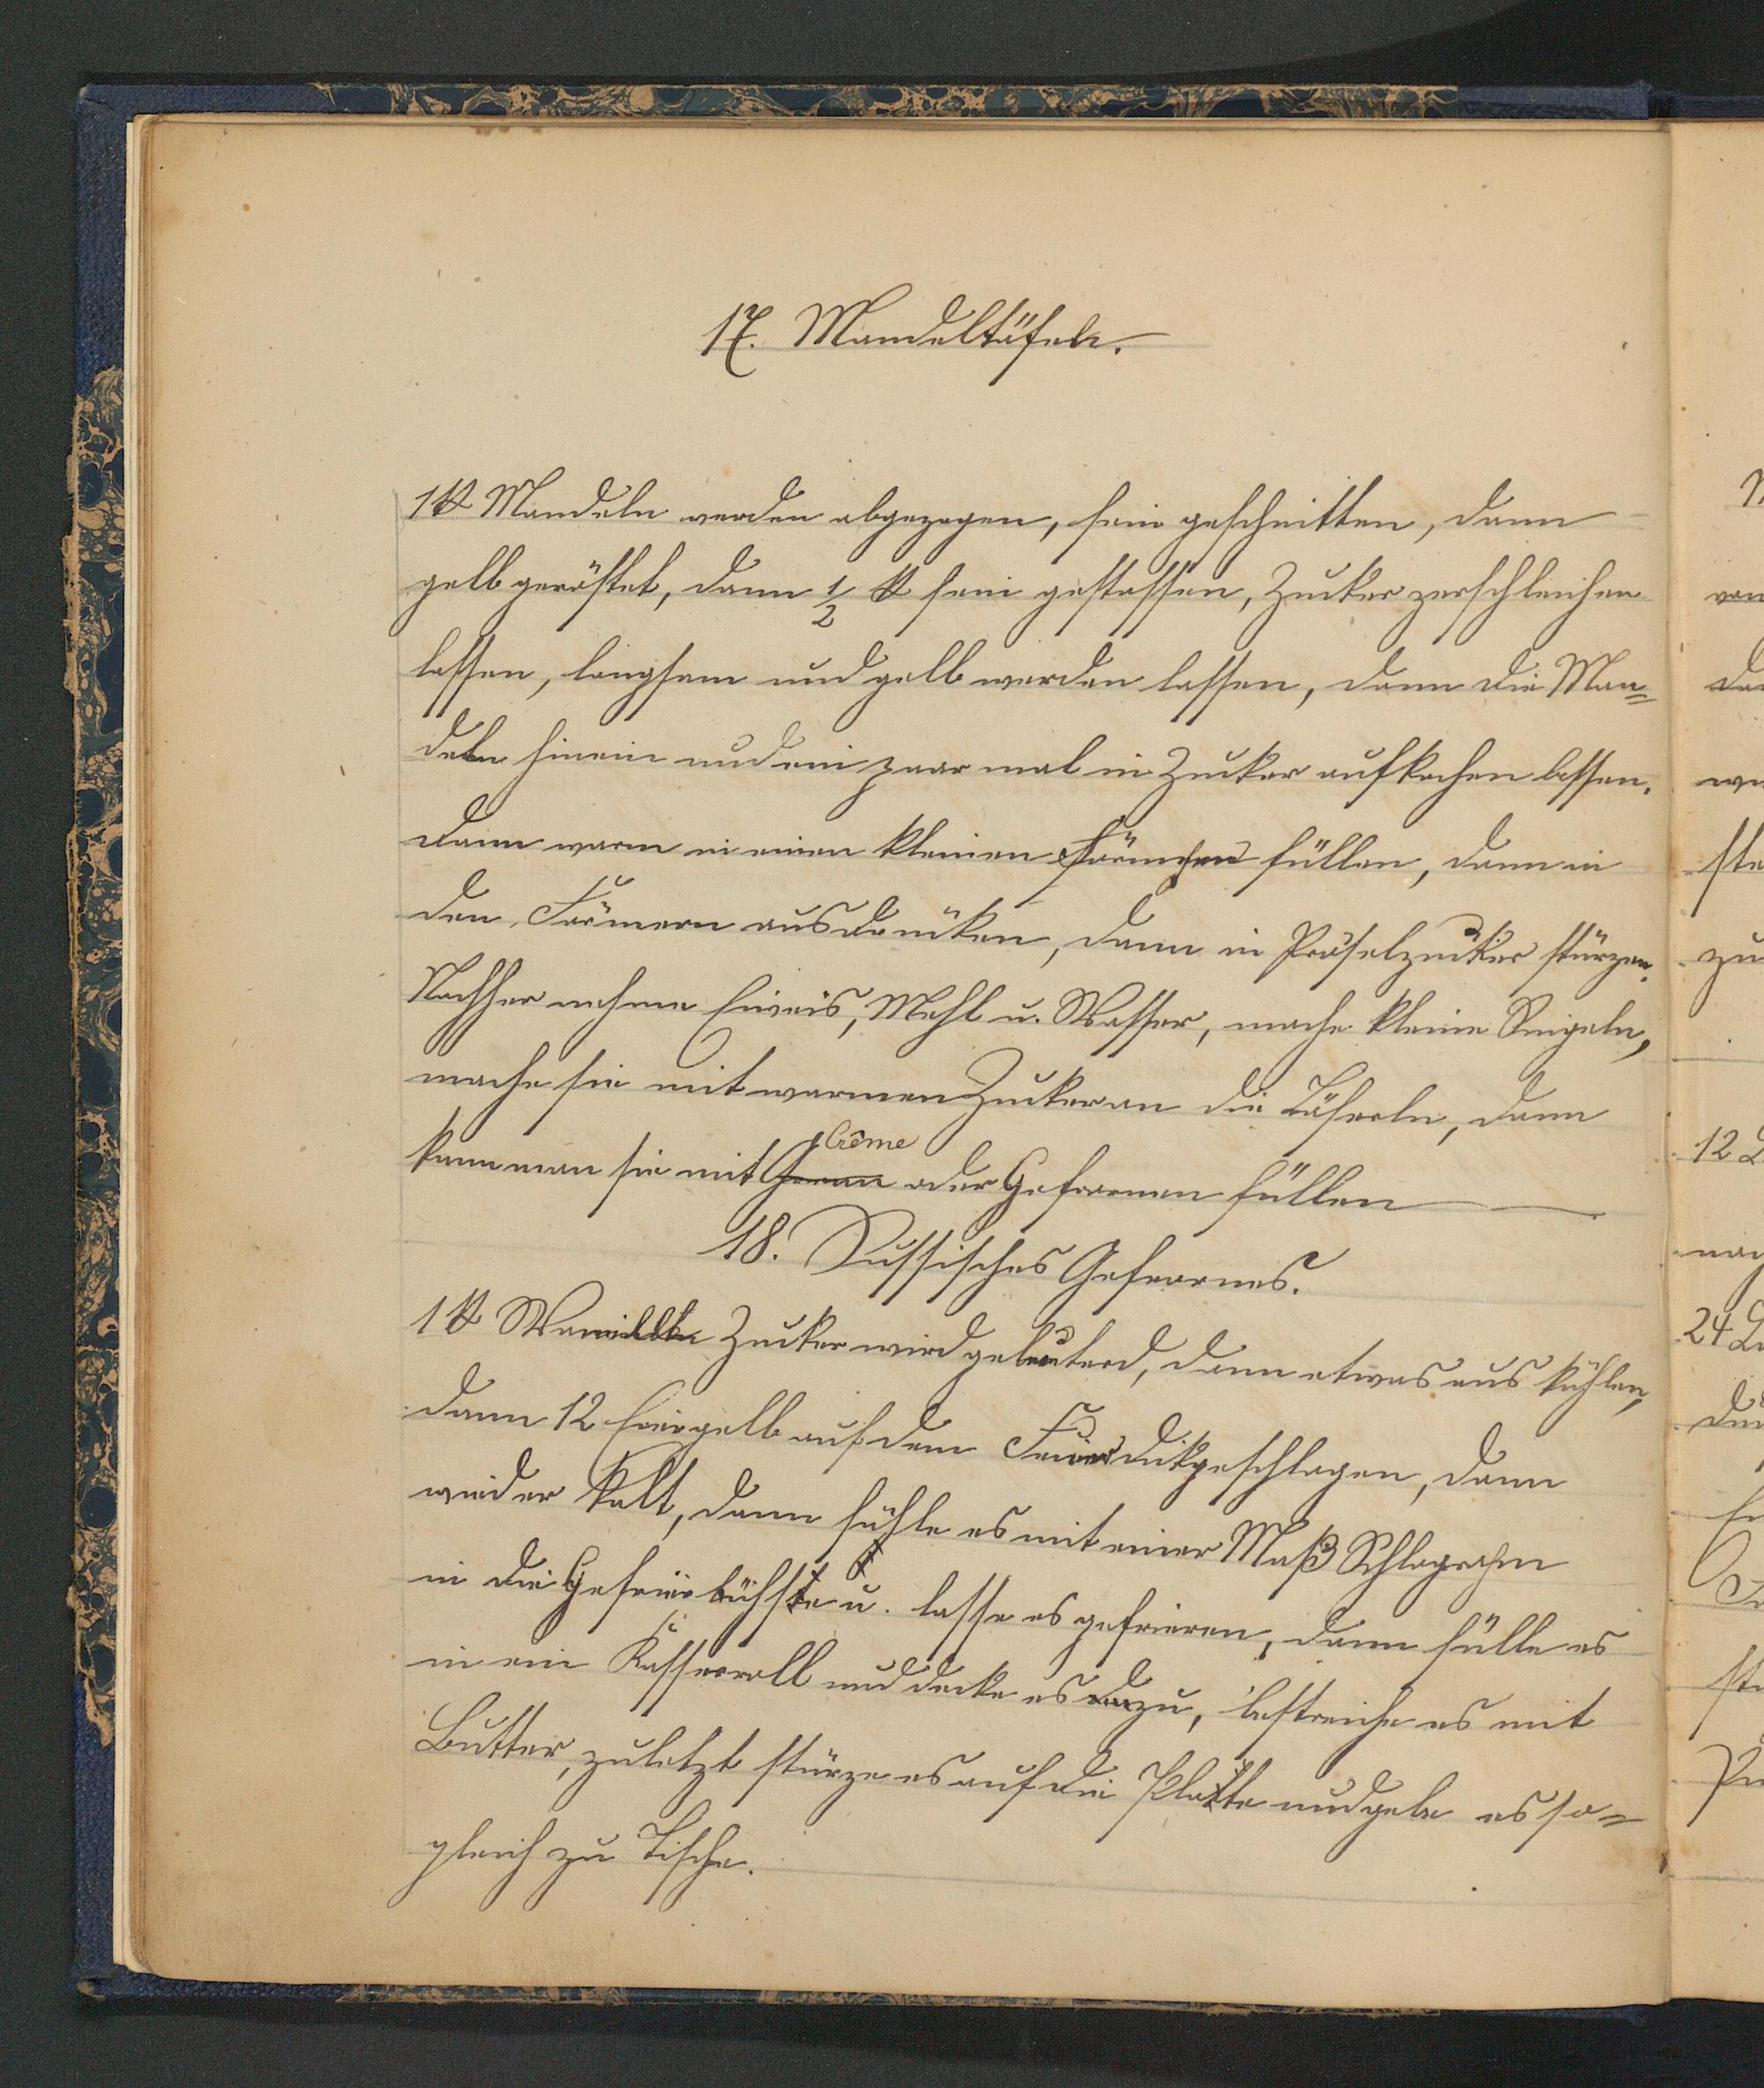 17. Mandeltäfeln.
1 ℔ Mandeln werden abgezogen, fein geschnitten, dann
gelb geröstet, dann 1/2 ℔ fein gestossen, Zucker zerschleichen
lassen, langsam und gelb werden lassen, dann die Man=
deln hinein und ein paar mal in Zucker aufkochen lassen.
dann warm in einen kleinen Förmchen füllen, dann in
den Förmern ausdrücken, dann in Pröselzucker stürzen.
Nachher nehme Eiweis, Mehl u. Wasser, mache kleine Ringeln,
mache sie mit warmen Zucker an die Täfereln, dann
kann man sie mit Crême oder Gefrornen füllen
18. Russisches Gefrornes.
1 ℔ Wanille Zucker wird geleuterd, dann etwas aus kühlen,
dann 12 Eiergelb auf dem Feuer dickgeschlagen, dann
wieder kalt, dann fühle es mit einer Maß Schlagrahm
in die Gefrierbüchse u. lasse es gefrieren, dann fülle es
in ein Kasserroll und decke es zu, bestreiche es mit
Butter, zuletzt stürze es auf die Platte und gebe es so=
gleich zu Tische.
12
24